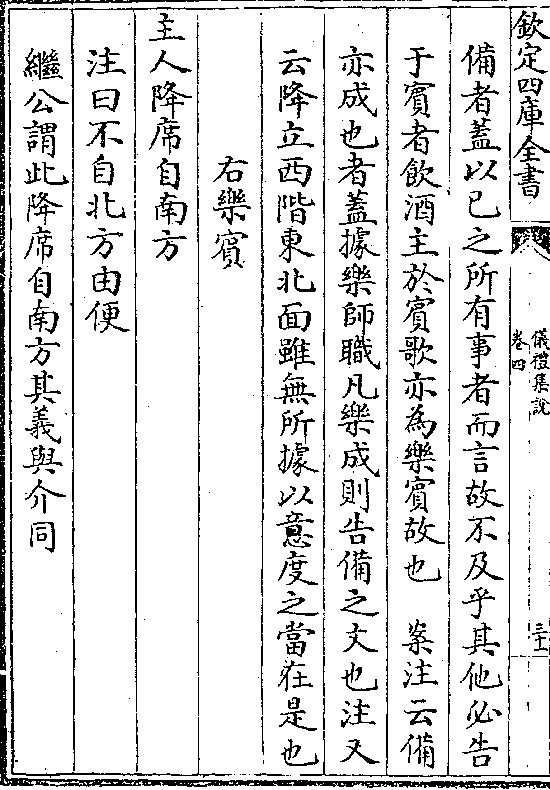 欽定四庫全書
儀禮集說
卷四
三十
備者蓋以已之所有事者而言故不及乎其他必告
于賓者飲酒主於賓歌亦為樂賓故也　案注云備
亦成也者蓋據樂師職凡樂成則告備之文也注又
云降立西階東北面雖無所據以意度之當在是也
右樂賓
主人降席自南方
注曰不自北方由便
繼公謂此降席自南方其義與介同